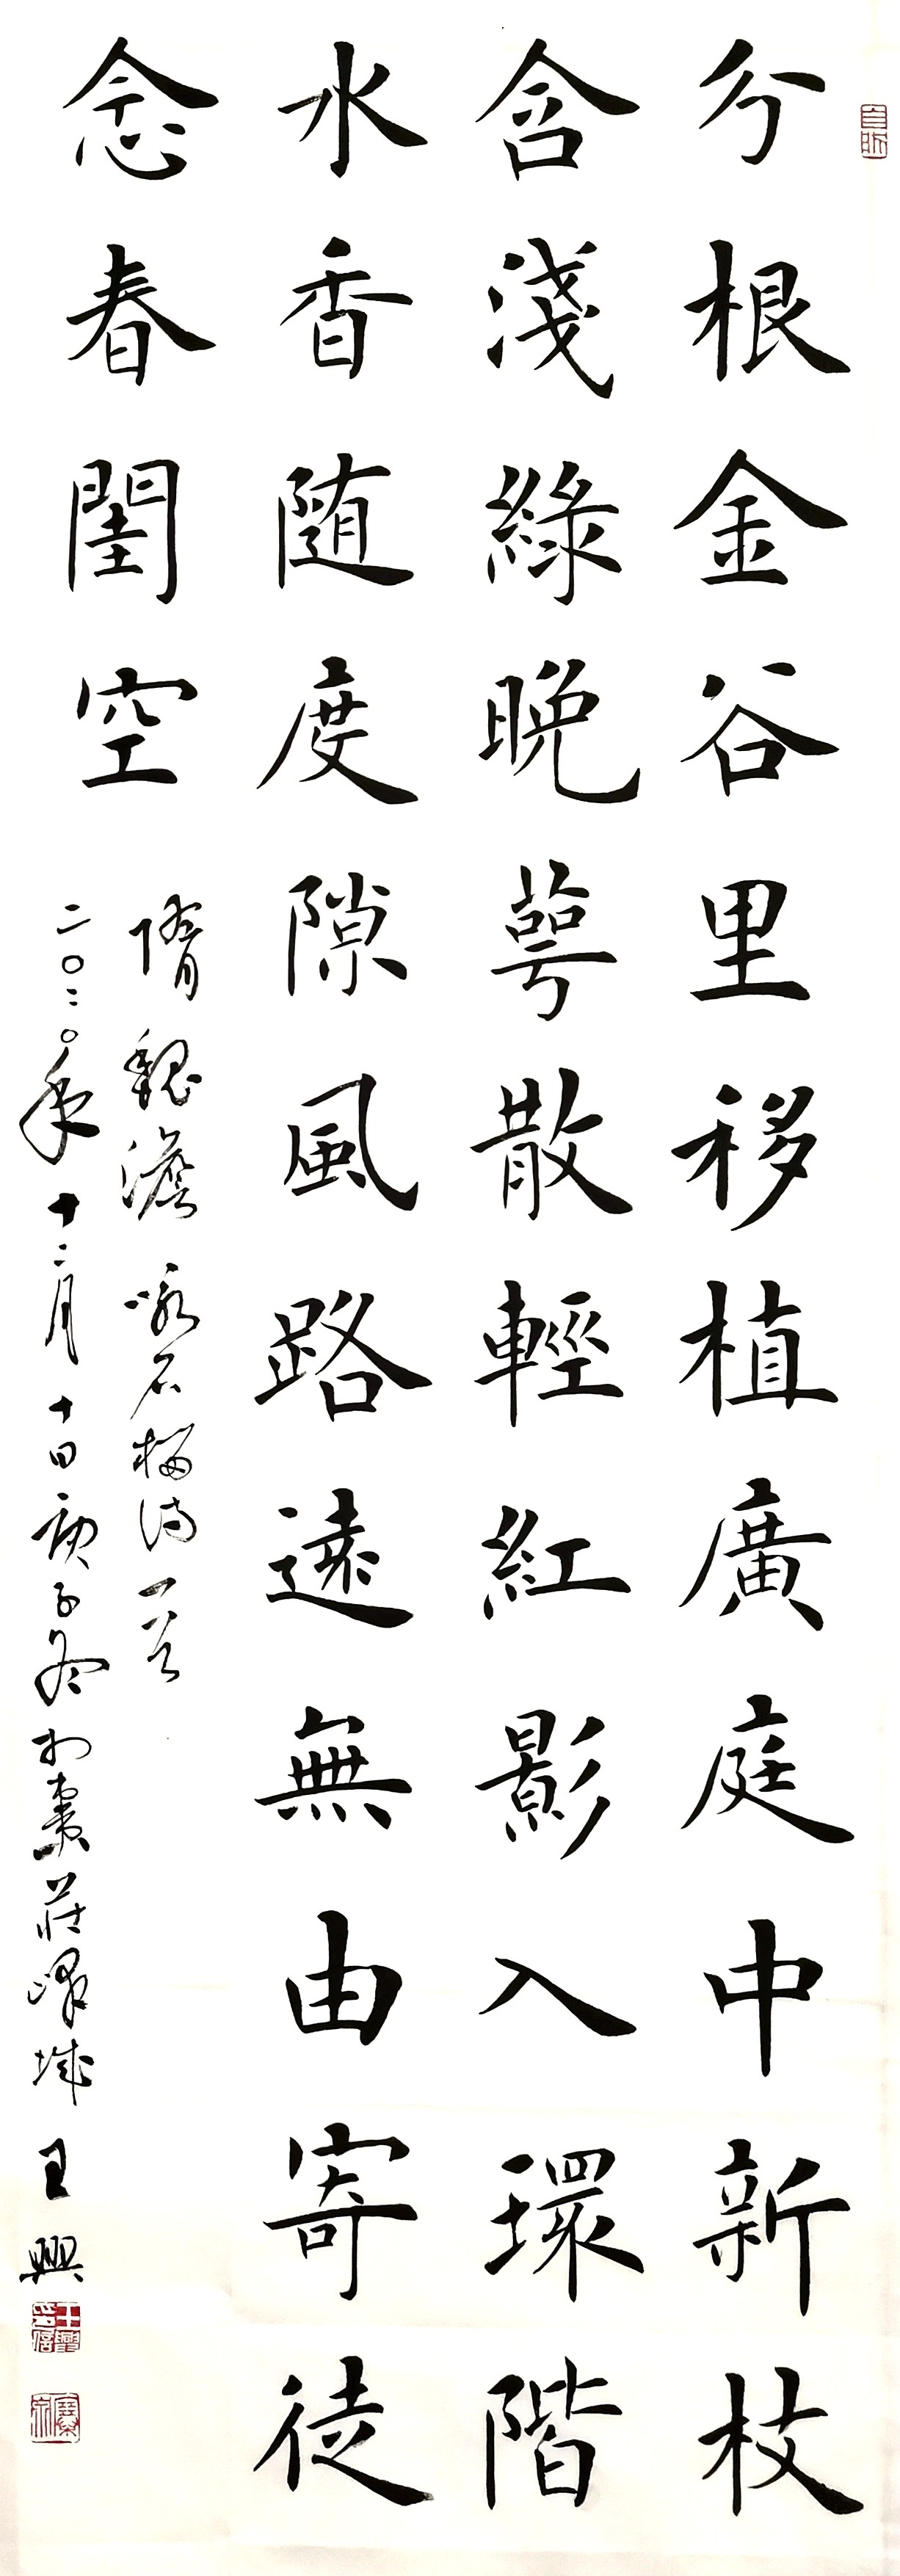 分根金谷里移植廣庭中新枝
含淺綠晚萼散輕紅影入環階
水香随度隙風路遠無由寄徒
念春閨空
隋魏澹咏石榴诗一首
二〇二〇年十二月十日庚子冬於棗莊嶧城王興